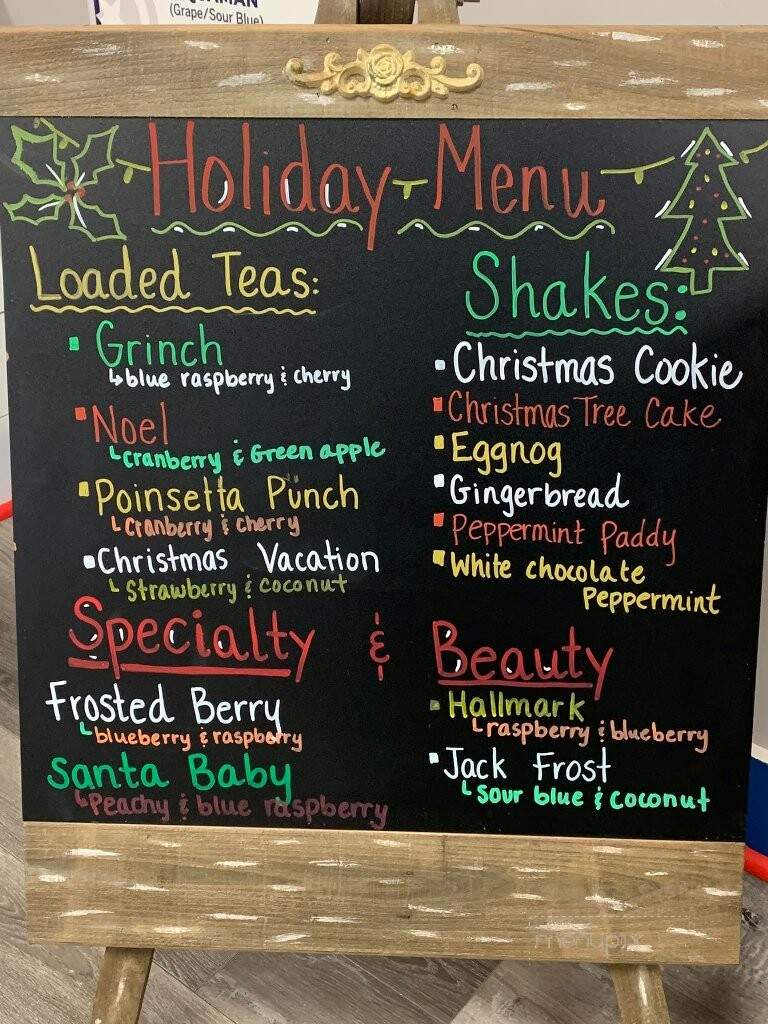 (Grape/Sour Blue)
Holiday Menu
Loaded Teas:
Grinch
↳blue raspberry & cherry
Noel
Cranberry & Green apple
Poinsetta Punch
Cranberry & cherry
Christmas Vacation
Strawberry & coconut
Shakes:
Christmas Cookie
Christmas Tree Cake
Eggnog
Gingerbread
Peppermint Paddy
White chocolate
Peppermint
Specialty & Beauty
Frosted Berry
blueberry & raspberry
Santa Baby
Peachy & blue raspberry
Hallmark
raspberry & blueberry
Jack Frost
Sour blue & coconut
menupix